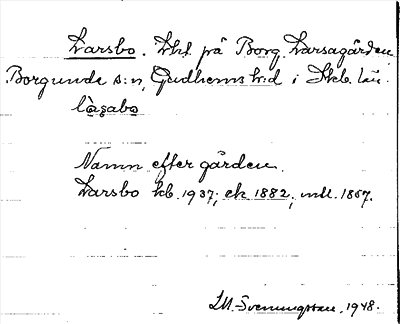 Larsbo. Lht på Borg. Larsagården.
Borgunda s:n, Gudhems hd i Skb. län.
Namn efter gården.
Larsbo kb. 1937; ek 1882; mtl. 1867.
I.M. Svenungsson, 1948.